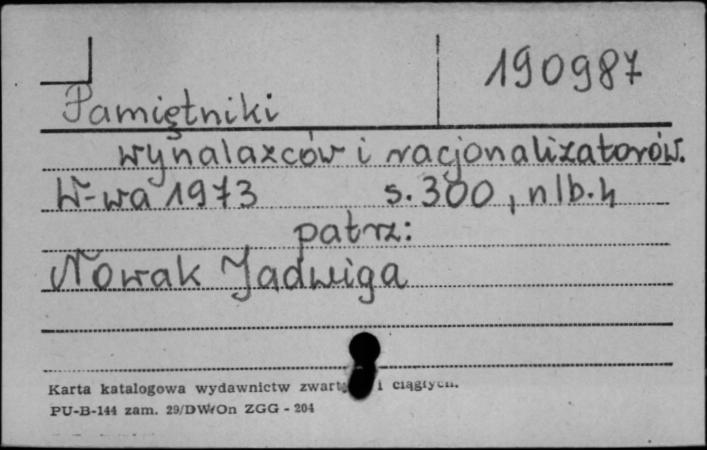 190987
Pamiętniki
wynalazców i racjonalizatorów.
W-wa 1973 s. 300, nlb. 4
patrz:
Nowak Jadwiga
Karta katalogowa wydawnictw i ciągłych.
PU-B-144 zam. 29/DW/On ZGG - 204